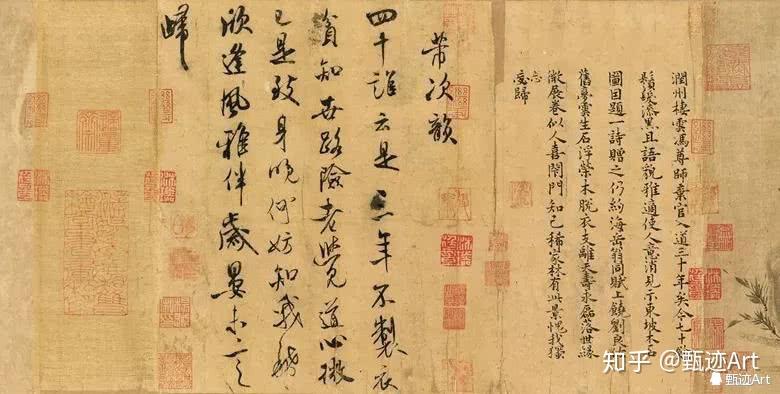 潤州棲雲馮尊師棄官入道三十年矣今七十餘
鬚髮漆黑且語貌雅適使人意消見示東坡木石
圖因題一詩贈之仍約海岳翁同賦上饒劉良佐
舊夢雲生石浮榮木脫衣支離天壽永磊落世緣
微展卷似人喜閉門知己稀家林有此景愧我獨
忘歸
芾次韻
四十誰云是三年不製衣
貧知世路險老覺道心微
已是致身晚何妨知我稀
欣逢風雅伴歲晏未言
歸
知乎 @甄迹Art
甄迹Art